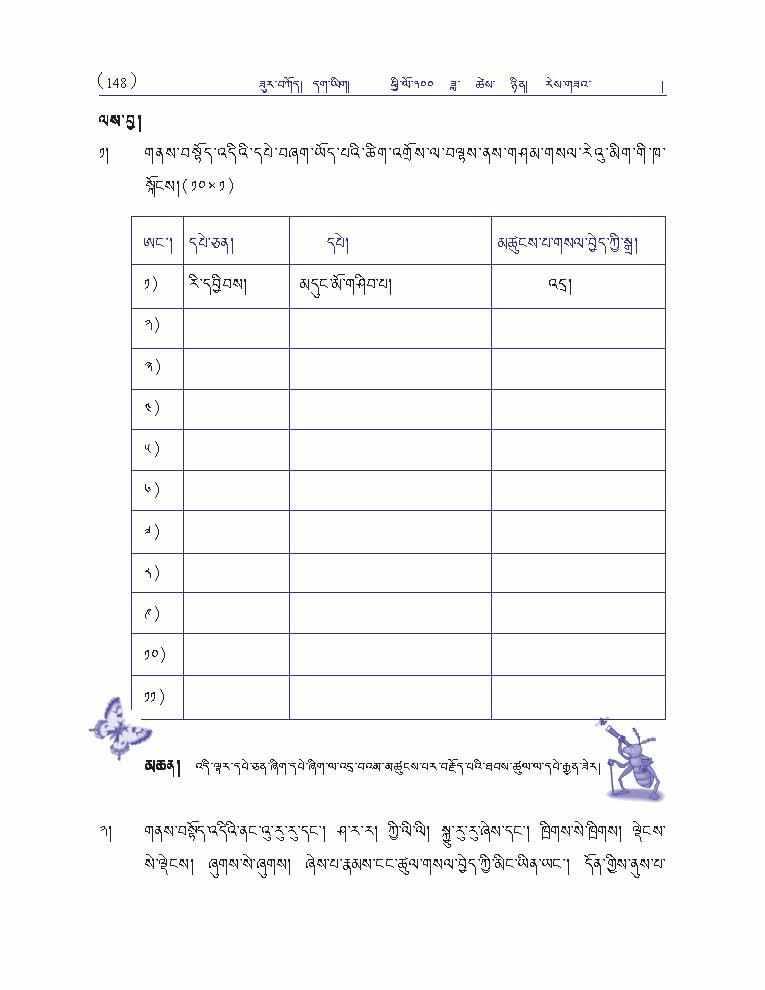 (148) ཟུར་བཀོད། དག་ཡིག སྤྱི་ལོ་༢༠༠ ཟླ་ ཚེས་ ཉིན། རེས་གཟའ་ །
ལས་བྱ།
༡། གནས་བསྟོད་འདིའི་དཔེ་བཞག་ཡོད་པའི་ཚིག་འགྲོས་ལ་བལྟས་ནས་གཤམ་གསལ་རེའུ་མིག་གི་ཁ་
སྐོངས། (༡༠×༡)
ཨང་། དཔེ་ཅན། དཔེ། མཚུངས་པ་གསལ་བྱེད་ཀྱི་སྒྲ།
༡) རི་དབྱིབས། མདུང་མོ་གཤིབ་པ། འདྲ།
༢)
༣)
༤)
༥)
༦)
༧)
༨)
༩)
༡༠)
༡༡)
མཆན། འདི་ལྟར་དཔེ་ཅན་ཞིག་དཔེ་ཞིག་ལ་འདྲ་བའམ་མཚུངས་པར་བརྗོད་པའི་ཐབས་ཚུལ་ལ་དཔེ་རྒྱན་ཟེར།
༢། གནས་བསྟོད་འདིའི་ནང་འུ་རུ་རུ་དང་། ཤ་ར་ར། ཀྱི་ལི་ལི། སྐྱུ་རུ་རུ་ཞེས་དང་། ཁྲིགས་སེ་ཁྲིགས། ལྡེངས་
སེ་ལྡེངས། ཞུགས་སེ་ཞུགས། ཞེས་པ་རྣམས་ངང་ཚུལ་གསལ་བྱེད་ཀྱི་མིང་ཡིན་ཡང་། དོན་གྱིས་ནུས་པ་